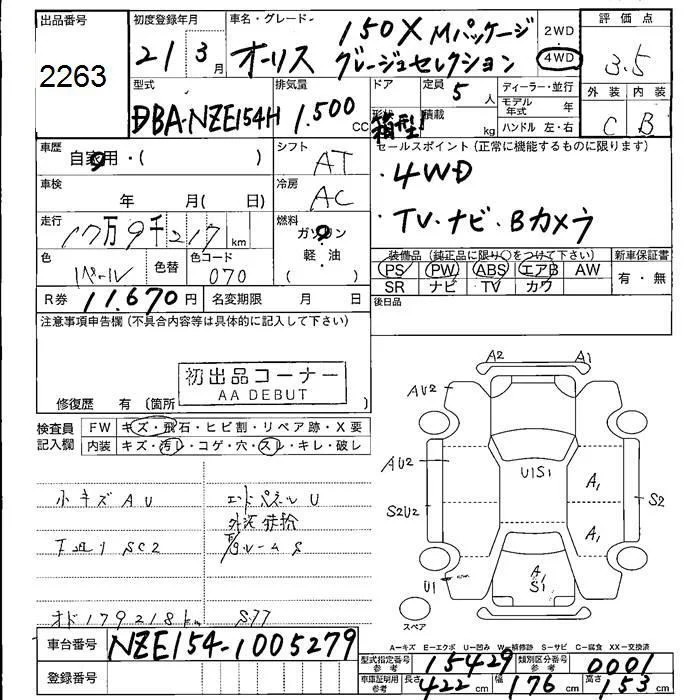 出品番号
2263
初度登録年月
21 3月
車名・グレード
オーリス 150X Mパッケージ
グレージュセレクション
2WD
4WD
評価点
3.5
外装 内装
C B
型式
DBA-NZE154H
排気量
1.500 CC
ドア
形状
箱型
定員 5 人
積載 kg
ディーラー・並行
モデル年式 年
ハンドル 左・右
車歴
自家用・( )
シフト
AT
セールスポイント(正常に機能するものに限ります)
・4WD
・TV・ナビ・Bカメラ
車検
年 月( 日)
冷房
AC
走行
17万9千217km
燃料
ガソリン
軽・油
( )
色
パール
色替
色コード
070
装備品(純正品に限り○をつけて下さい)
PS PW ABS エアB AW
SR ナビ TV カワ
新車保証書
有・無
R券 11.670円
名変期限 月 日
後日品
注意事項申告欄(不具合内容等は具体的に記入して下さい)
初出品コーナー
AA DEBUT
修復歴 有(箇所 )
検査員
記入欄
FW キズ・飛石・ヒビ割・リペア跡・X要
内装 キズ・汚レ・コゲ・穴・スレ・キレ・破レ
小キズ AU
エンドパネル U
下回り SC2
オド179218km
S77
A2 A1
AU2
AU2
S2U2
U1
U1S1
A1
A1
S2
A
S1
スペア
A−キズ E−エクボ U−凹み W−補修跡 S−サビ C−腐食 XX−交換済
車台番号
NZE154-1005279
登録番号
型式指定番号
参考
15429
類別区分番号
参考
0001
車庫証明用
参考
長さ 422cm
幅 176cm
高さ 153cm